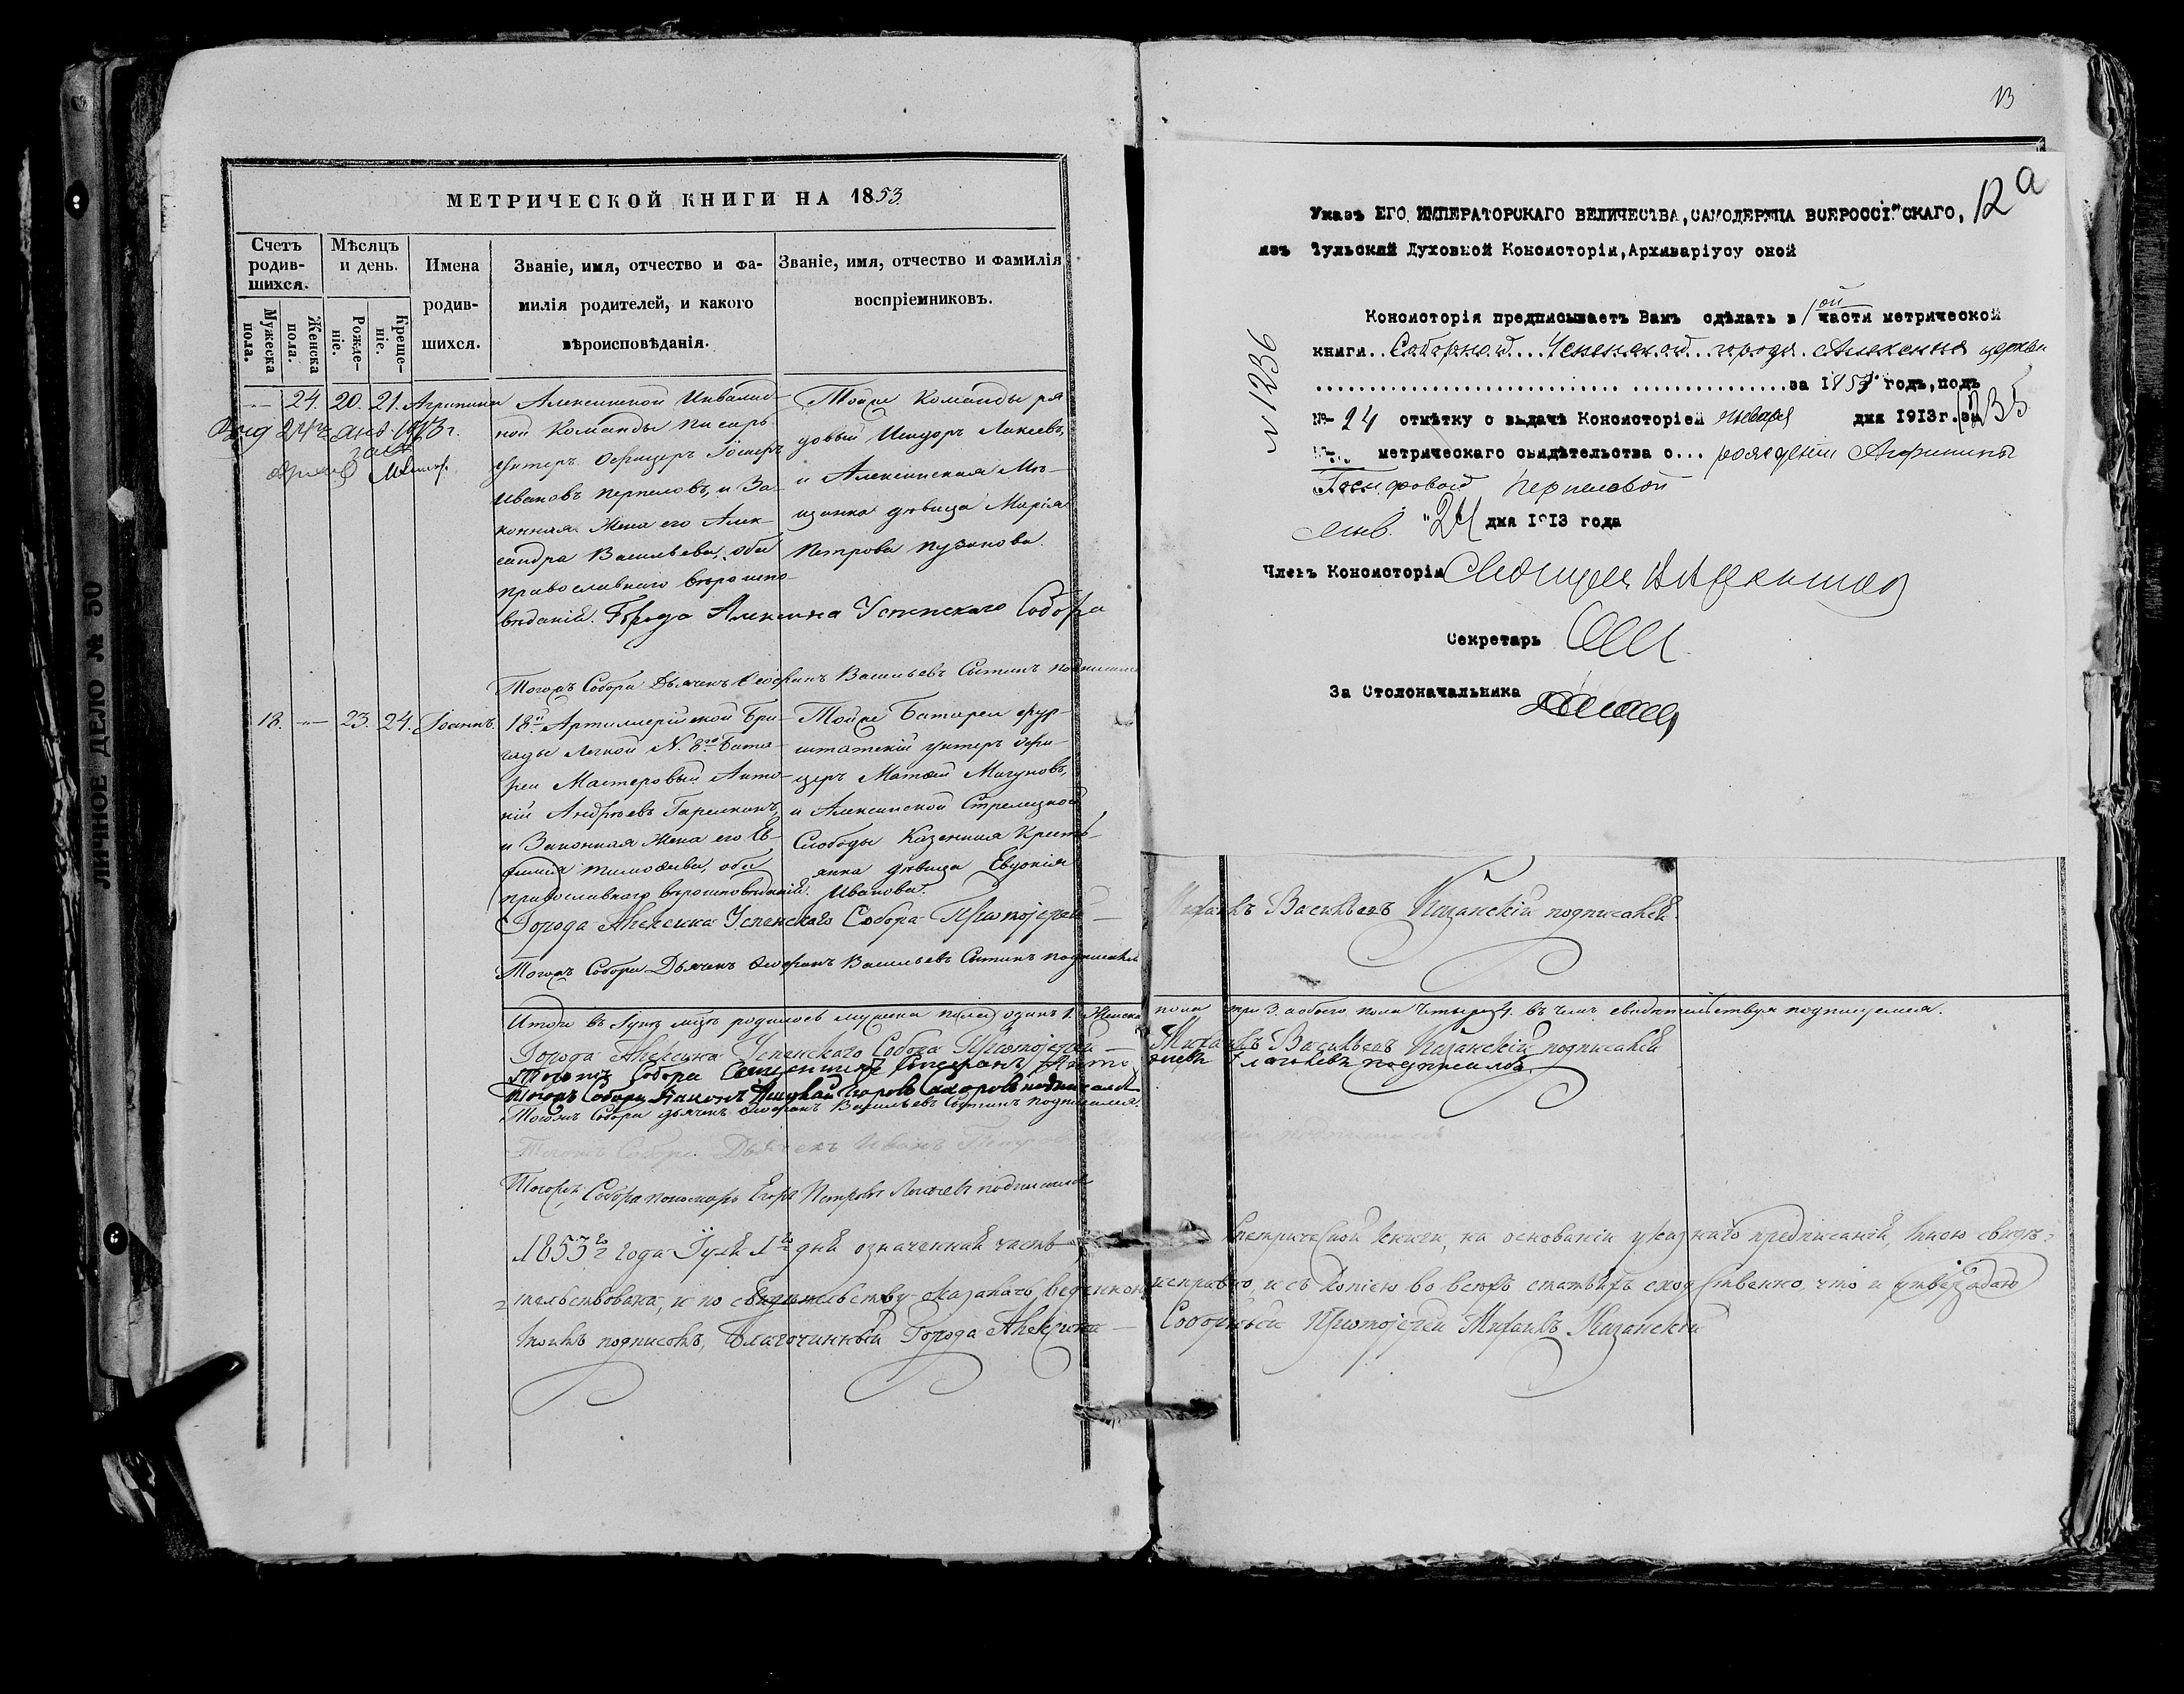 МЕТРИЧЕСКОЙ КНИГИ НА 1853.
Счетъ родив-шихся.
Мѣсяцъ и день.
Имена родив-шихся.
Званіе, имя, отчество и фа-
милія родителей, и какого
вѣроисповѣданія.
Званіе, имя, отчество и фамилія
воспріемниковъ.
Мужеска пола.
Женска пола.
Рожде-ніе.
Креще-ніе.
24. 20. 21. Агрипина
Алексинской Инвалид-
ной Команды Писарь
Унтеръ Офицеръ Іосифъ
Ивановъ Перпеловъ, и За-
конная Жена его Алек-
сандра Васильева, оба
православнаго вѣроиспо-
вѣданій. Города Алексина Успенскаго Собора
Тойже Команды ря
довый Исидоръ Алексѣевъ,
и Алексинская Мѣ-
щанка дѣвица Марія
Петрова Пузанова
янв. 1913 г.
Тогожъ Собора Дьячекъ Ѳеофанъ Васильевъ Сытинъ подписался
18. — 23. 24. Іоаннъ.
18й Артиллерійской Бри-
гады Легкой N. 8го Бата-
реи Мастеровый Анто-
ній Андрѣевъ Гарелкинъ,
и Законная Жена его Ев-
фимія Тимоѳеева, оба
православнаго вѣроисповѣданій.
Тойже Батареи фур-
штатскій унтеръ офи-
церъ Матѳей Мигуновъ,
и Алексинской Стрелецкой
Слободы Казенная Кресть-
янка дѣвица Евдокія
Иванова.
Города Алексина Успенскаго Собора Протоіерей —
Михаилъ Васильевъ Казанскій подписался
Тогожъ Собора Дьячекъ Ѳеофанъ Васильевъ Сытинъ подписался
Итого въ Іунѣ мцѣ родилось мужеска пола одинъ 1. Женска пола три 3. а обоего пола четыре 4. въ чемъ свидѣтельствуя подписуемся.
Города Алексина Успенскаго Собора Протоіерей — Михаилъ Васильевъ Казанскій подписался
Тогожъ Собора Священникъ
подписался
Тогожъ Собора Діаконъ
подписался
Тогожъ Собора дьячекъ Ѳеофанъ Васильевъ Сытинъ подписался.
Тогожъ Собора Дьячекъ Иванъ Петровъ
Тогожъ Собора пономарь Егоръ Петровъ
подписался
1853го года Іулія 1го дня означенная часть метрической книги, на основаніи указнаго предписанія, мною свидѣ-
тельствована, и по свидѣтельству оказалась веденною исправно, и съ копіею во всѣхъ статьяхъ сходственно, что и утверждаю
моимъ подписомъ, Благочинный Города Алексина — Соборный Протоіерей Михаилъ Казанскій
13
12а
Указъ ЕГО ИМПЕРАТОРСКАГО ВЕЛИЧЕСТВА, САМОДЕРЖЦА ВСЕРОССІЙСКАГО,
изъ Тульский Духовной Консисторіи, Архиваріусу оной
Консисторія предписываетъ Вамъ сдѣлать в 1ой части метрической
книги.. Соборной....Успенской...города.Алексина церкви
за 1853 годъ, подъ
№ 24 отмѣтку о выдачѣ Консисторіей января дня 1913г. за
№ метрическаго свидѣтельства о... рожденіи Агрипины
Іосифовой Перпеловой
янв. "24 дня 1913 года
Членъ Консисторіи
Секретарь
За Столоначальника
№ 1236
ЛИЧНОЕ ДЕЛО № 50